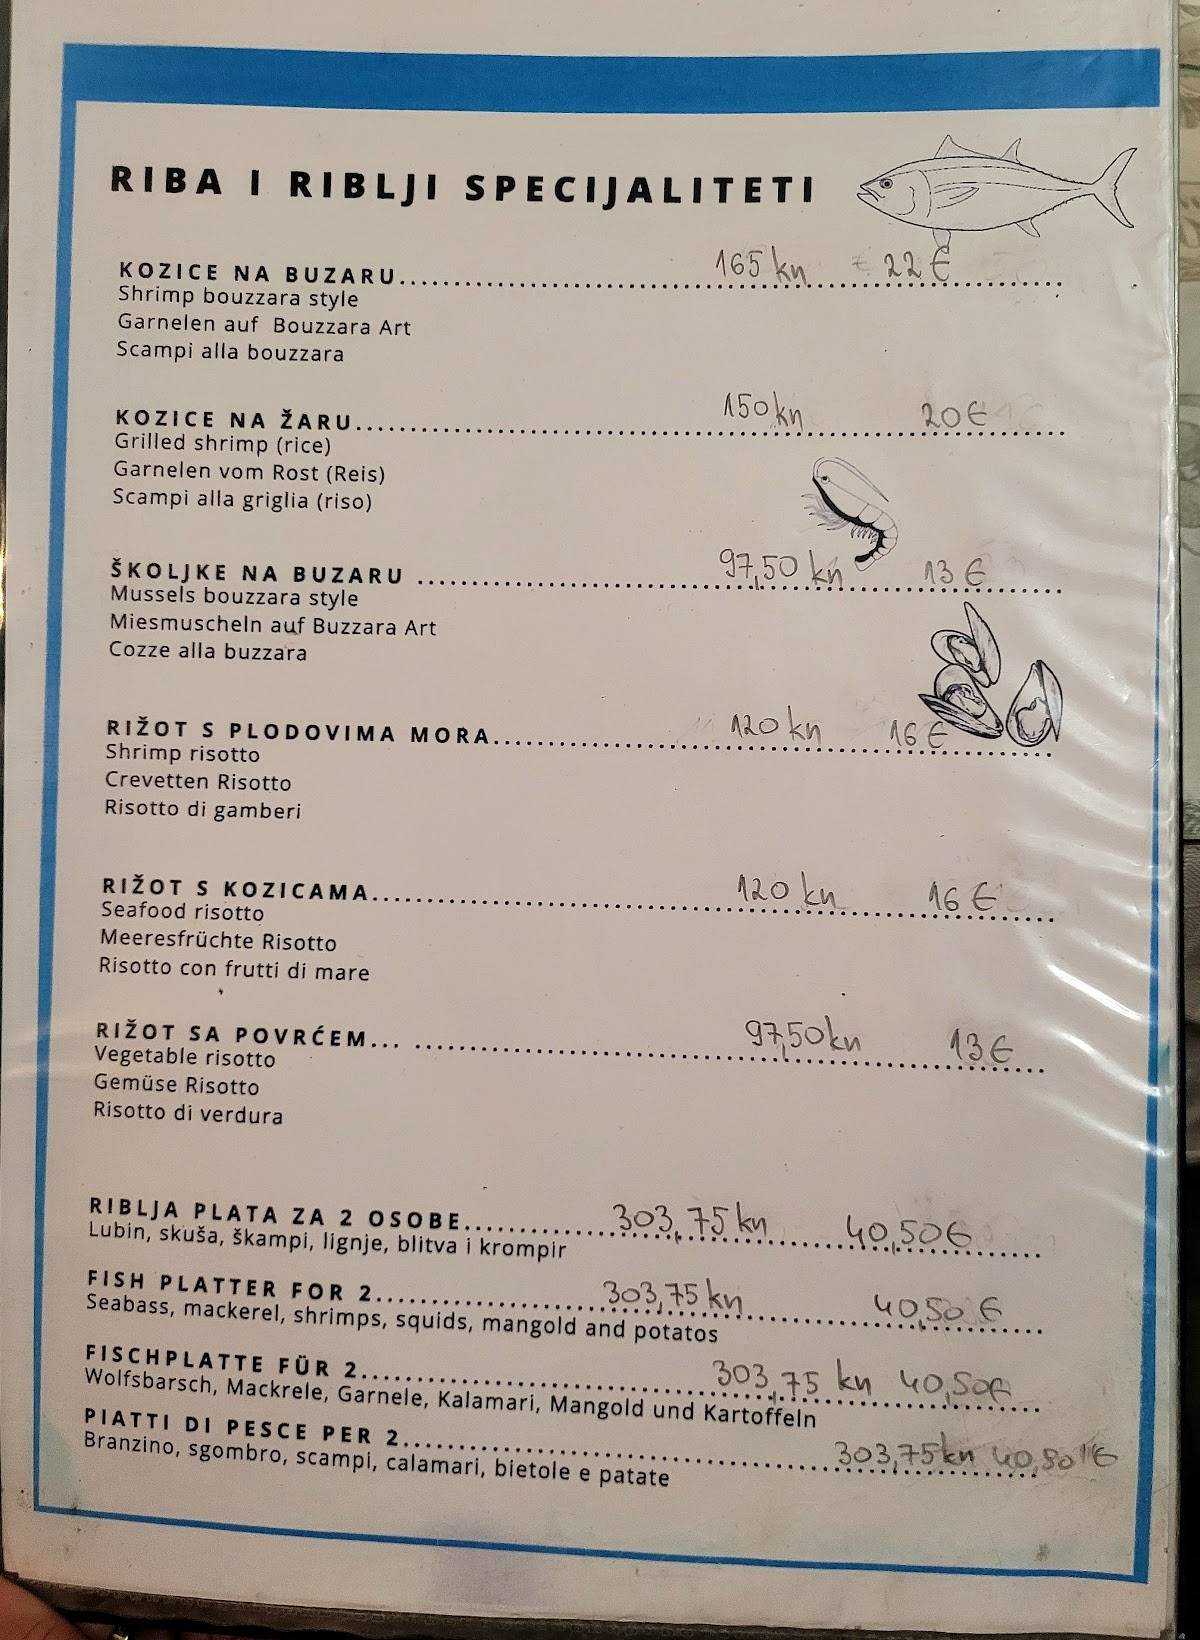 RIBA I RIBLJI SPECIJALITETI
KOZICE NA BUZARU.......... 165 kn 22 €
Shrimp bouzzara style
Garnelen auf Bouzzara Art
Scampi alla bouzzara
KOZICE NA ŽARU.......... 150 kn 20 €
Grilled shrimp (rice)
Garnelen vom Rost (Reis)
Scampi alla griglia (riso)
ŠKOLJKE NA BUZARU .......... 97,50 kn 13 €
Mussels bouzzara style
Miesmuscheln auf Buzzara Art
Cozze alla buzzara
RIŽOT S PLODOVIMA MORA.......... 120 kn 16 €
Shrimp risotto
Crevetten Risotto
Risotto di gamberi
RIŽOT S KOZICAMA.......... 120 kn 16 €
Seafood risotto
Meeresfrüchte Risotto
Risotto con frutti di mare
RIŽOT SA POVRĆEM... .......... 97,50 kn 13 €
Vegetable risotto
Gemüse Risotto
Risotto di verdura
RIBLJA PLATA ZA 2 OSOBE.......... 303,75 kn 40,50 €
Lubin, skuša, škampi, lignje, blitva i krompir
FISH PLATTER FOR 2.......... 303,75 kn 40,50 €
Seabass, mackerel, shrimps, squids, mangold and potatos
FISCHPLATTE FÜR 2.......... 303,75 kn 40,50 €
Wolfsbarsch, Mackrele, Garnele, Kalamari, Mangold und Kartoffeln
PIATTI DI PESCE PER 2.......... 303,75 kn 40,50 €
Branzino, sgombro, scampi, calamari, bietole e patate